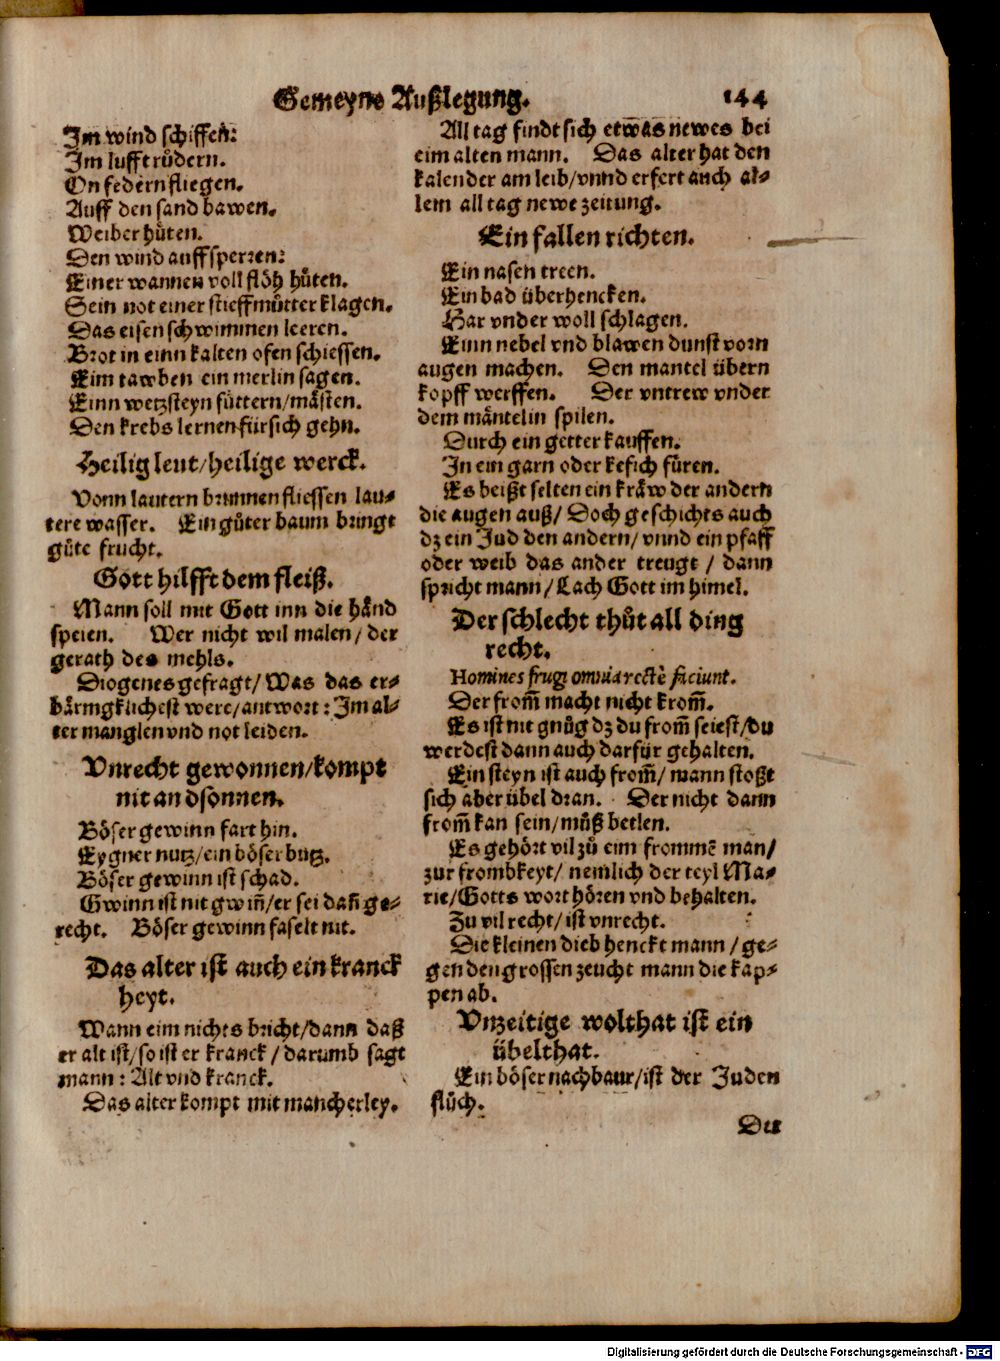 Gemeyne Außlegung. 144
Im wind schiffen:
Im lufft růdern.
On federn fliegen.
Auff den sand bawen.
Weiber hüten.
Den wind auffsperren:
Einer wannen voll flöh hůten.
Sein not einer stieffmůtter klagen.
Das eisen schwimmen leeren.
Brot in einn kalten ofen schiessen.
Eim tawben ein merlin sagen.
Einn wetzsteyn füttern/mästen.
Den krebs lernen fürsich gehn.
Heilig leut/heilige werck.
Vonn lautern brunnen fliessen lau-
tere wasser. Ein gůter baum bringt
gůte frucht.
Gott hilfft dem fleiß.
Mann soll mit Gott inn die händ
speien. Wer nicht wil malen/der
gerath des mehls.
Diogenes gefragt/Was das er-
bärmgklichest were/antwort: Im al-
ter manglen vnd not leiden.
Vnrecht gewonnen/kompt
nit an dsonnen.
Böser gewinn fart hin.
Eygner nutz/ein böser butz.
Böser gewinn ist schad.
Gwinn ist nit gwiñ/er sei dañ ge-
recht. Böser gewinn faselt nit.
Das alter ist auch ein kranck
heyt.
Wann eim nichts bricht/dann daß
er alt ist/so ist er kranck/darumb sagt
mann: Alt vnd kranck.
Das alter kompt mit mancherley.
All tag findt sich etwas newes bei
eim alten mann. Das alter hat den
kalender am leib/vnnd erfert auch al-
lem all tag newe zeitung.
Ein fallen richten.
Ein nasen treen.
Ein bad überhencken.
Har vnder woll schlagen.
Einn nebel vnd blawen dunst vorn
augen machen. Den mantel übern
kopff werffen. Der vntrew vnder
dem mäntelin spilen.
Durch ein getter kauffen.
In ein garn oder kefich füren.
Es beißt selten ein kräw der andern
die augen auß/Doch geschichts auch
dz ein Jud den andern/vnnd ein pfaff
oder weib das ander treugt/dann
spricht mann/Lach Gott im himel.
Der schlecht thůt all ding
recht.
Homines frugi omnia rectè faciunt.
Der from̃ macht nicht krom̃.
Es ist nit gnůg dz du from̃ seiest/du
werdest dann auch darfür gehalten.
Ein steyn ist auch from̃/mann stoßt
sich aber übel dran. Der nicht dann
from̃ kan sein/můß betlen.
Es gehört vil zů eim frommẽ man/
zur frombkeyt/nemlich der teyl Ma-
rie/Gotts wort hören vnd behalten.
Zu vil recht/ist vnrecht.
Die kleinen dieb henckt mann/ge-
gen den grossen zeucht mann die kap-
pen ab.
Vnzeitige wolthat ist ein
übelthat.
Ein böser nachbaur/ist der Juden
flůch.
Der
Digitalisierung gefördert durch die Deutsche Forschungsgemeinschaft - DFG